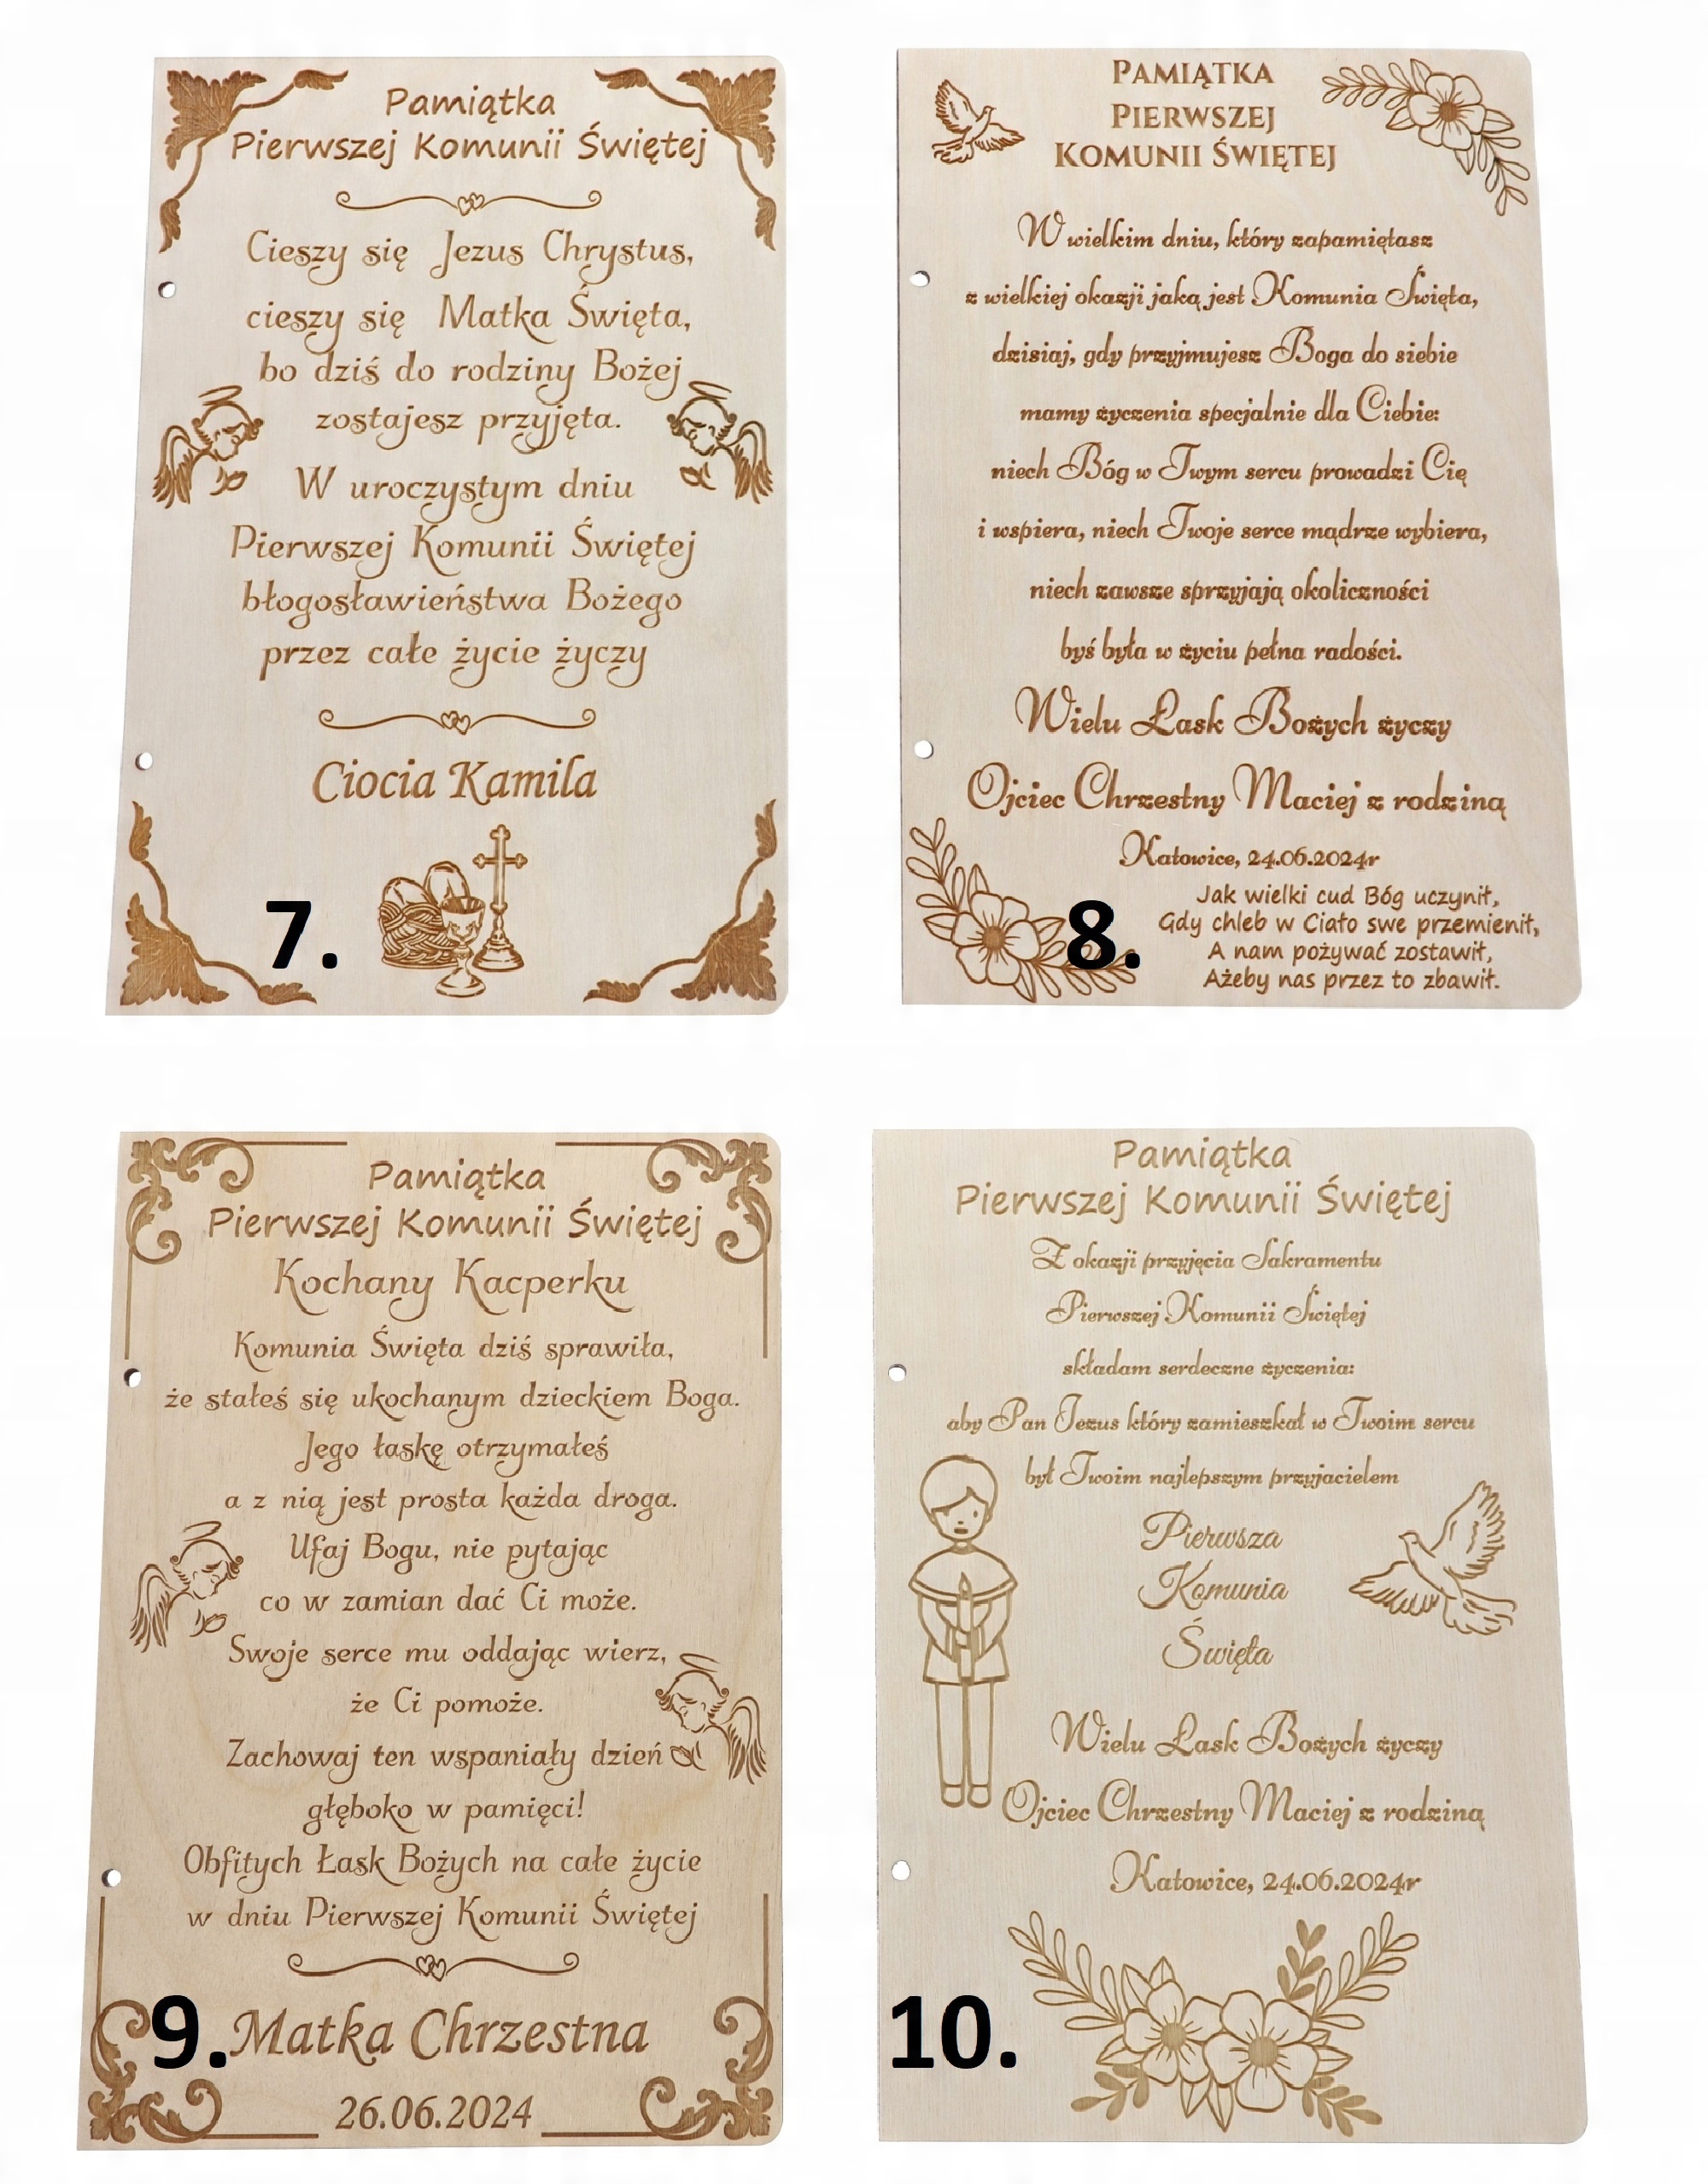 Pamiątka
Pierwszej Komunii Świętej
Cieszy się Jezus Chrystus,
cieszy się Matka Święta,
bo dziś do rodziny Bożej
zostajesz przyjęta.
W uroczystym dniu
Pierwszej Komunii Świętej
błogosławieństwa Bożego
przez całe życie życzy
Ciocia Kamila
7.
PAMIĄTKA
PIERWSZEJ
KOMUNII ŚWIĘTEJ
W wielkim dniu, który zapamiętasz
z wielkiej okazji jaką jest Komunia Święta,
dzisiaj, gdy przyjmujesz Boga do siebie
mamy życzenia specjalnie dla Ciebie:
niech Bóg w Twym sercu prowadzi Cię
i wspiera, niech Twoje serce mądrze wybiera,
niech zawsze sprzyjają okoliczności
byś była w życiu pełna radości.
Wielu Łask Bożych życzy
Ojciec Chrzestny Maciej z rodziną
Katowice, 24.06.2024r
Jak wielki cud Bóg uczynił,
Gdy chleb w Ciało swe przemienił,
A nam pożywać zostawił,
Ażeby nas przez to zbawił.
8.
Pamiątka
Pierwszej Komunii Świętej
Kochany Kacperku
Komunia Święta dziś sprawiła,
że stałeś się ukochanym dzieckiem Boga.
Jego łaskę otrzymałeś
a z nią jest prosta każda droga.
Ufaj Bogu, nie pytając
co w zamian dać Ci może.
Swoje serce mu oddając wierz,
że Ci pomoże.
Zachowaj ten wspaniały dzień
głęboko w pamięci!
Obfitych Łask Bożych na całe życie
w dniu Pierwszej Komunii Świętej
9. Matka Chrzestna
26.06.2024
Pamiątka
Pierwszej Komunii Świętej
Z okazji przyjęcia Sakramentu
Pierwszej Komunii Świętej
składam serdeczne życzenia:
aby Pan Jezus który zamieszkał w Twoim sercu
był Twoim najlepszym przyjacielem
Pierwsza
Komunia
Święta
Wielu Łask Bożych życzy
Ojciec Chrzestny Maciej z rodziną
Katowice, 24.06.2024r
10.